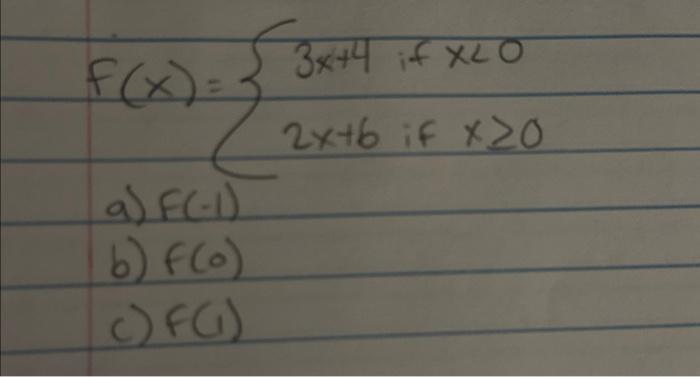 F(x) = { 3x+4 if x<0
2x+6 if x≥0
a) F(-1)
b) F(0)
c) F(1)